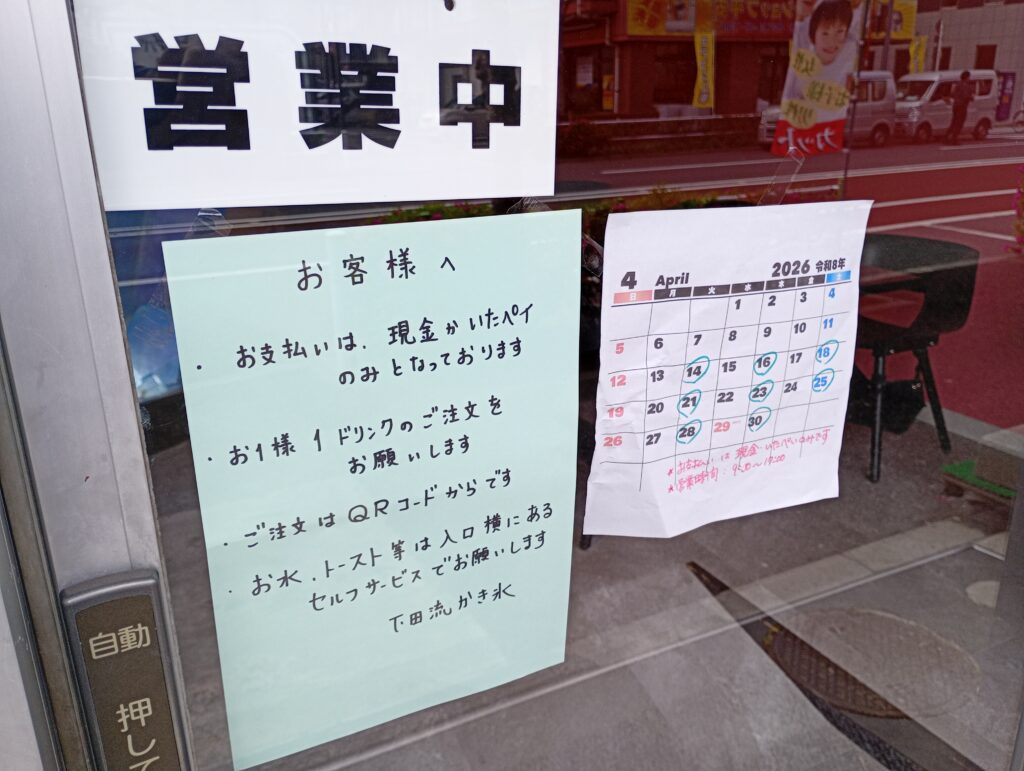 営業中
お客様へ
・お支払いは、現金かいたペイ
のみとなっております
・お1様1ドリンクのご注文を
お願いします
・ご注文はQRコードからです
・お水、トースト等は入口横にある
セルフサービスでお願いします
下田流かき氷
4 April 2026 令和8年
日 月 火 水 木 金 土
1 2 3 4
5 6 7 8 9 10 11
12 13 14 15 16 17 18
19 20 21 22 23 24 25
26 27 28 29 30
*お支払いは現金・いたペイのみです
*営業時間:
自動
押して
カット